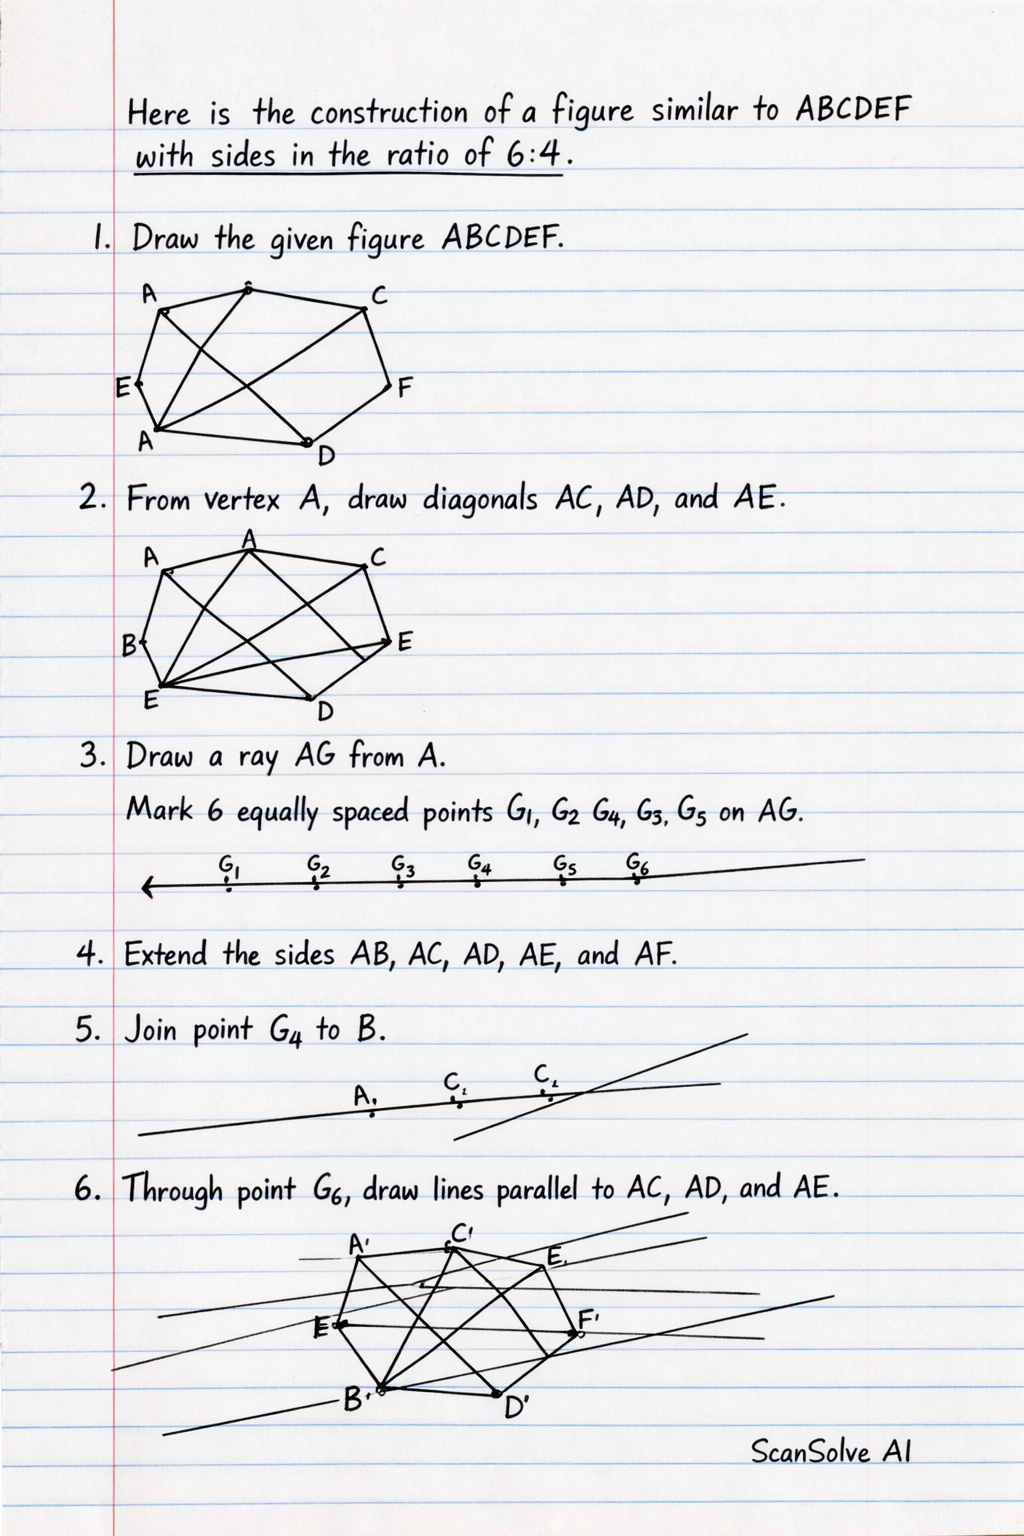 Here is the construction of a figure similar to ABCDEF
with sides in the ratio of 6:4.
1. Draw the given figure ABCDEF.
A
C
E
F
A
D
2. From vertex A, draw diagonals AC, AD, and AE.
A
A
C
B
E
E
D
3. Draw a ray AG from A.
Mark 6 equally spaced points G₁, G₂ G₄, G₃, G₅ on AG.
G₁ G₂ G₃ G₄ G₅ G₆
4. Extend the sides AB, AC, AD, AE, and AF.
5. Join point G₄ to B.
A₁ C₂ C₂
6. Through point G₆, draw lines parallel to AC, AD, and AE.
A' C'
E
E F'
B' D'
ScanSolve AI